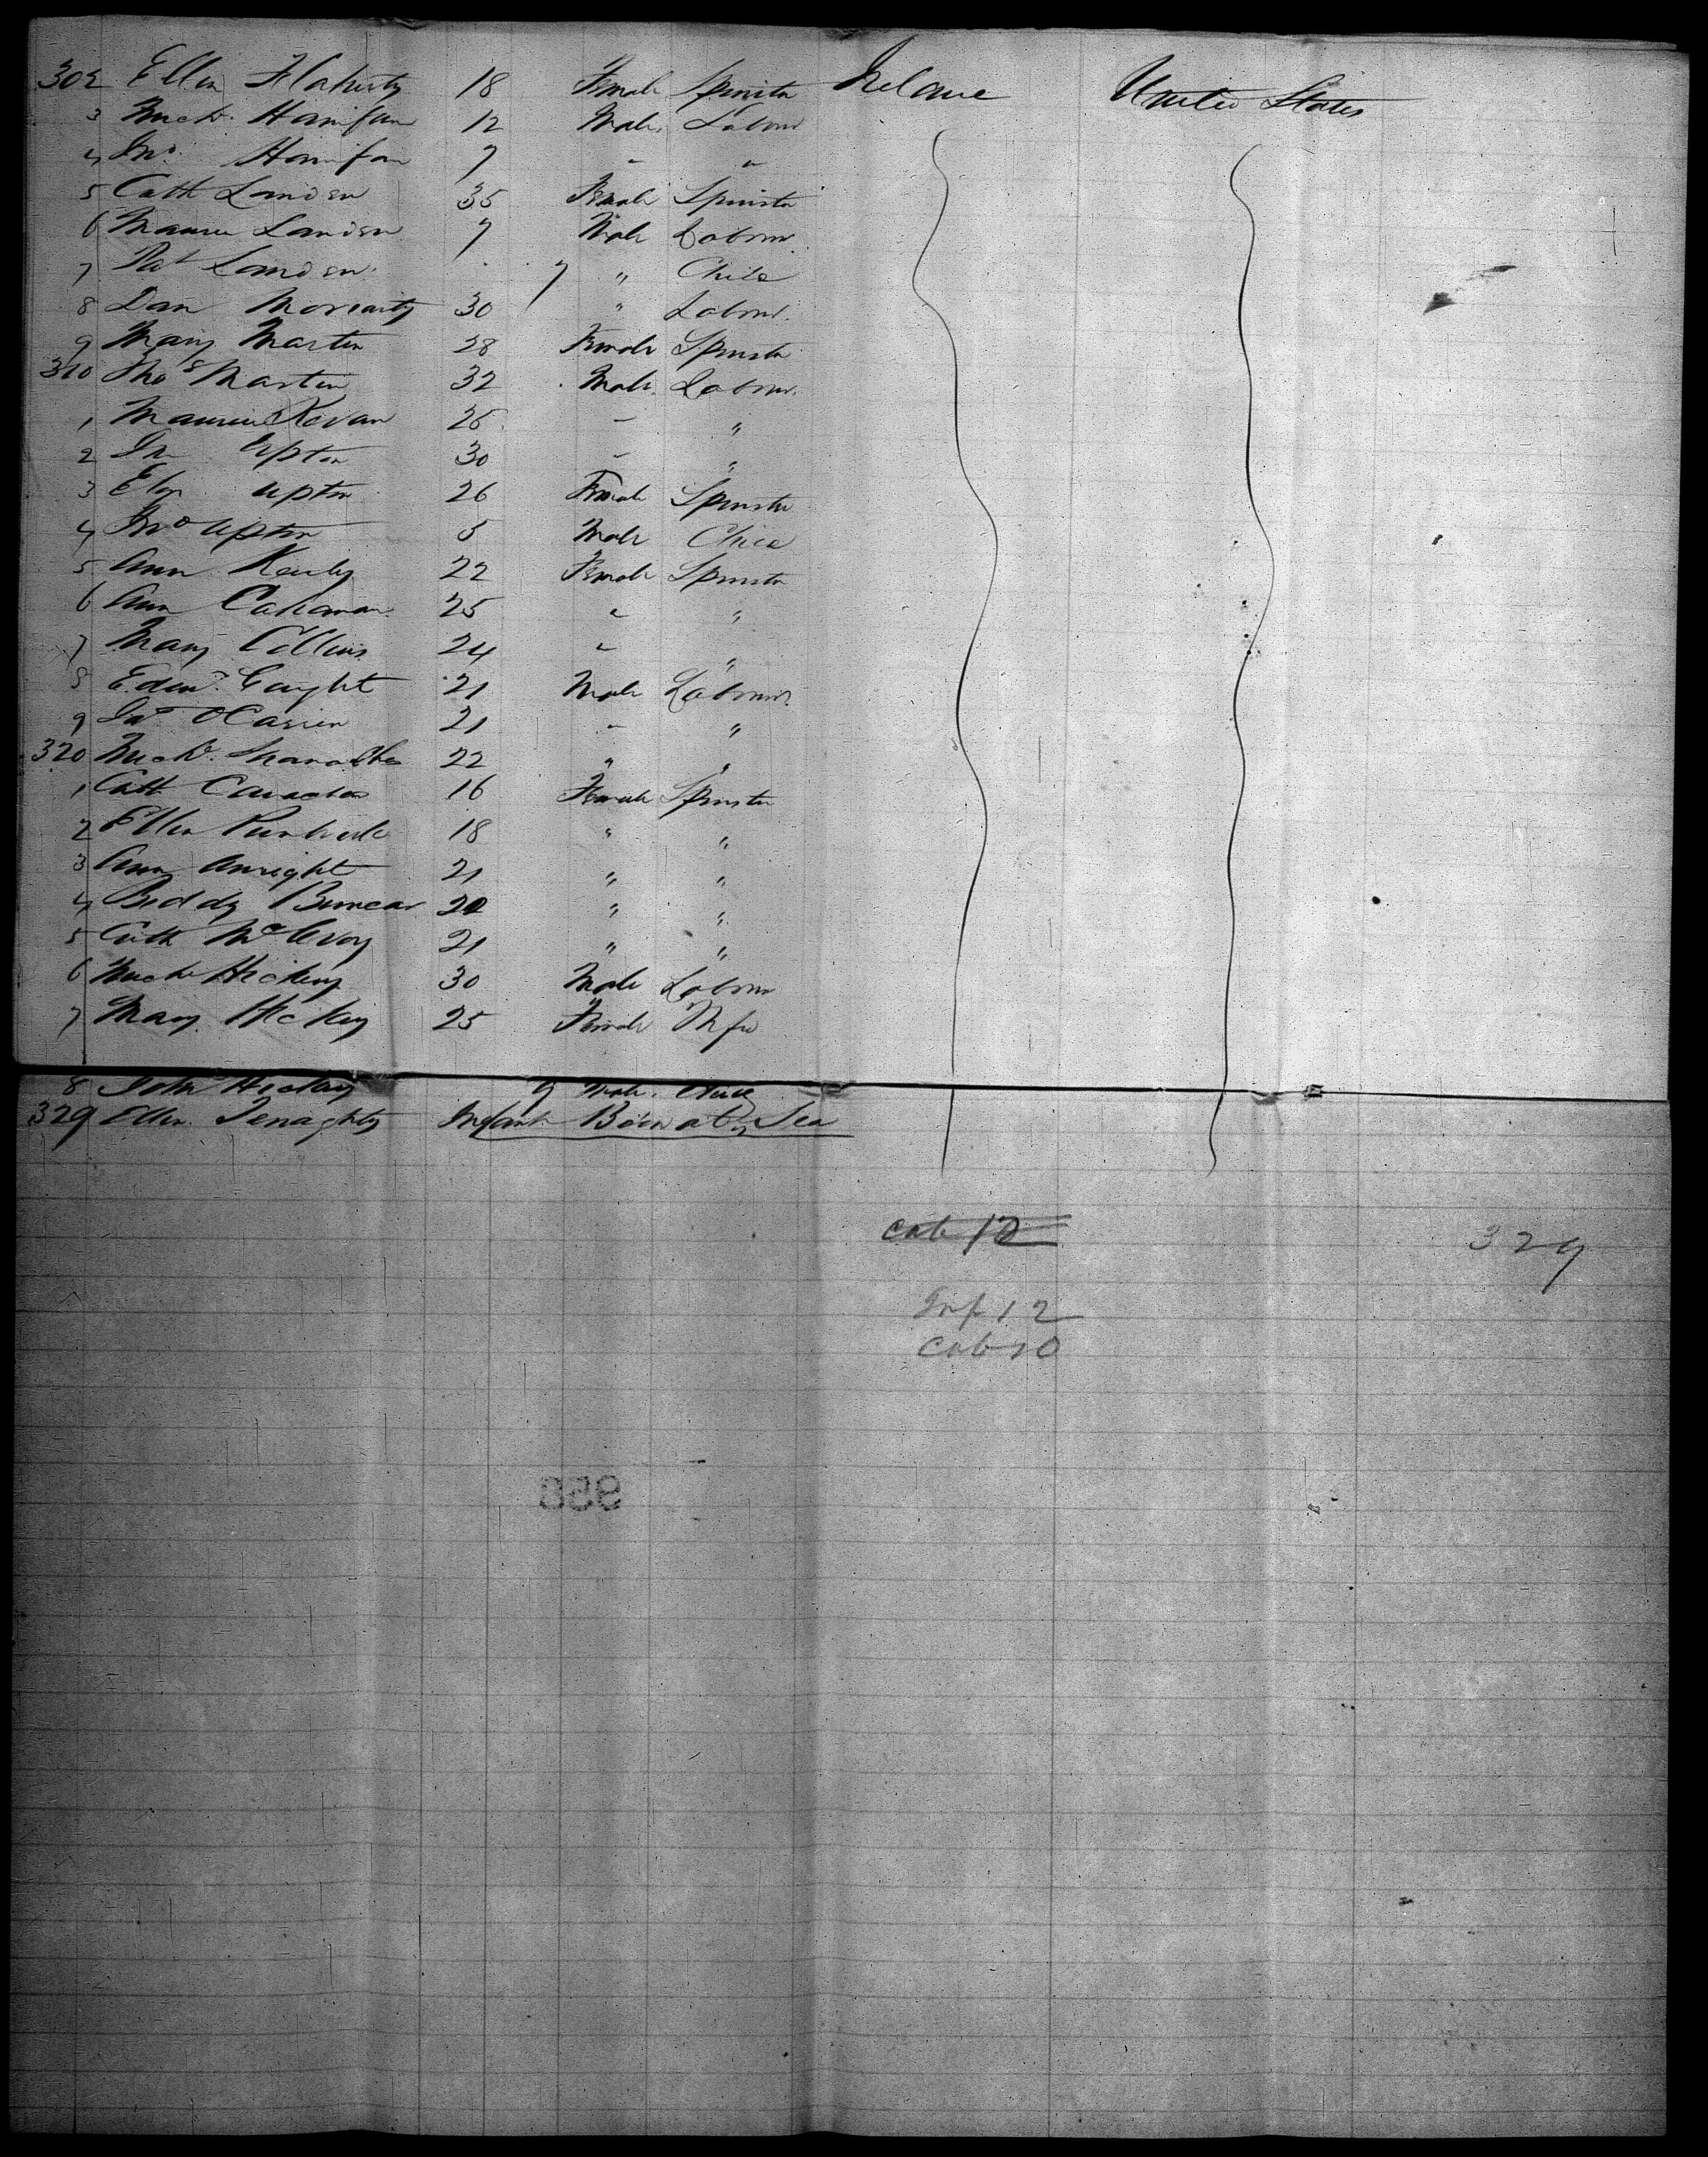 302 Ellen Flaherty 18 Female Spinster Ireland United States
3 Mich. Hanifan 12 Male Labour
4 Jno. Hanifan 7 " "
5 Cath Landen 35 Female Spinster
6 Maurice Landen 7 Male Labour
7 Pat Landen 7 " Child
8 Dan Moriarty 30 " Labour.
9 Mary Martin 28 Female Spinster
310 Thos Martin 32 Male Labour.
1 Maurice 26 " "
2 Jn Upton 30 " "
3 Eliz Upton 26 Female Spinster
4 Jno Upton 5 Male Child
5 Ann Kealy 22 Female Spinster
6 Ann Calanan 25 " "
7 Mary Collins 24 " "
8 Edmd. 21 Male Labour.
9 21 " "
320 Mich. 22 " "
1 Cath 16 Female Spinster
2 Ellen 18 " "
3 Ann Anright 21 " "
4 Biddy 20 " "
5 Cath McEvoy 21 " "
6 Mich Hickey 30 Male Labour
7 Mary Hickey 25 Female Wife
8 John Hickey 9 Male Child
329 Ellen Fenaghty Infant Born at Sea
Cab 12
329
Inf 12
Cab 10